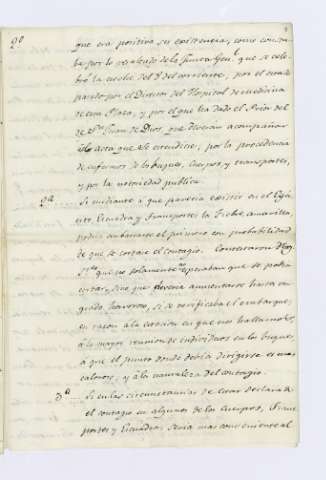 que era positiva su existencia, como consta-
ba por lo resultado de la Junta Gen.l que se cele-
bró la noche del 8 del corriente, por el
parte por el Director del Hospital de medicina
de esta Plaza, y por el que ha dado el Prior del
de S.n Juan de Dios, que deverán acompañar
el acta que se extendiere, por la procedencia
de enfermos de los buques, Cuerpos, y transportes,
y por la notoriedad publica.
2.a Si mediante á que parecia existir en el Exér-
cito, Escuadra y Transportes la Fiebre amarilla,
podia embarcarse el primero con probabilidad
de que se cortase el contagio. Contestaron
que no solamente no esperaban que se podia
cortar, sino que deveria aumentarse hasta un
grado horroroso, si se verificaba el embarque;
en razon á la estacion en que nos hallamos,
á la mayor reunion de individuos en los buques
á que el punto donde debia dirigirse es mas
caloroso, y á la naturaleza del contagio.
3.a Si en las circunstancias de estar declarado
el contagio en algunos de los Cuerpos, Trans-
portes y Escuadra, seria mas conveniente al